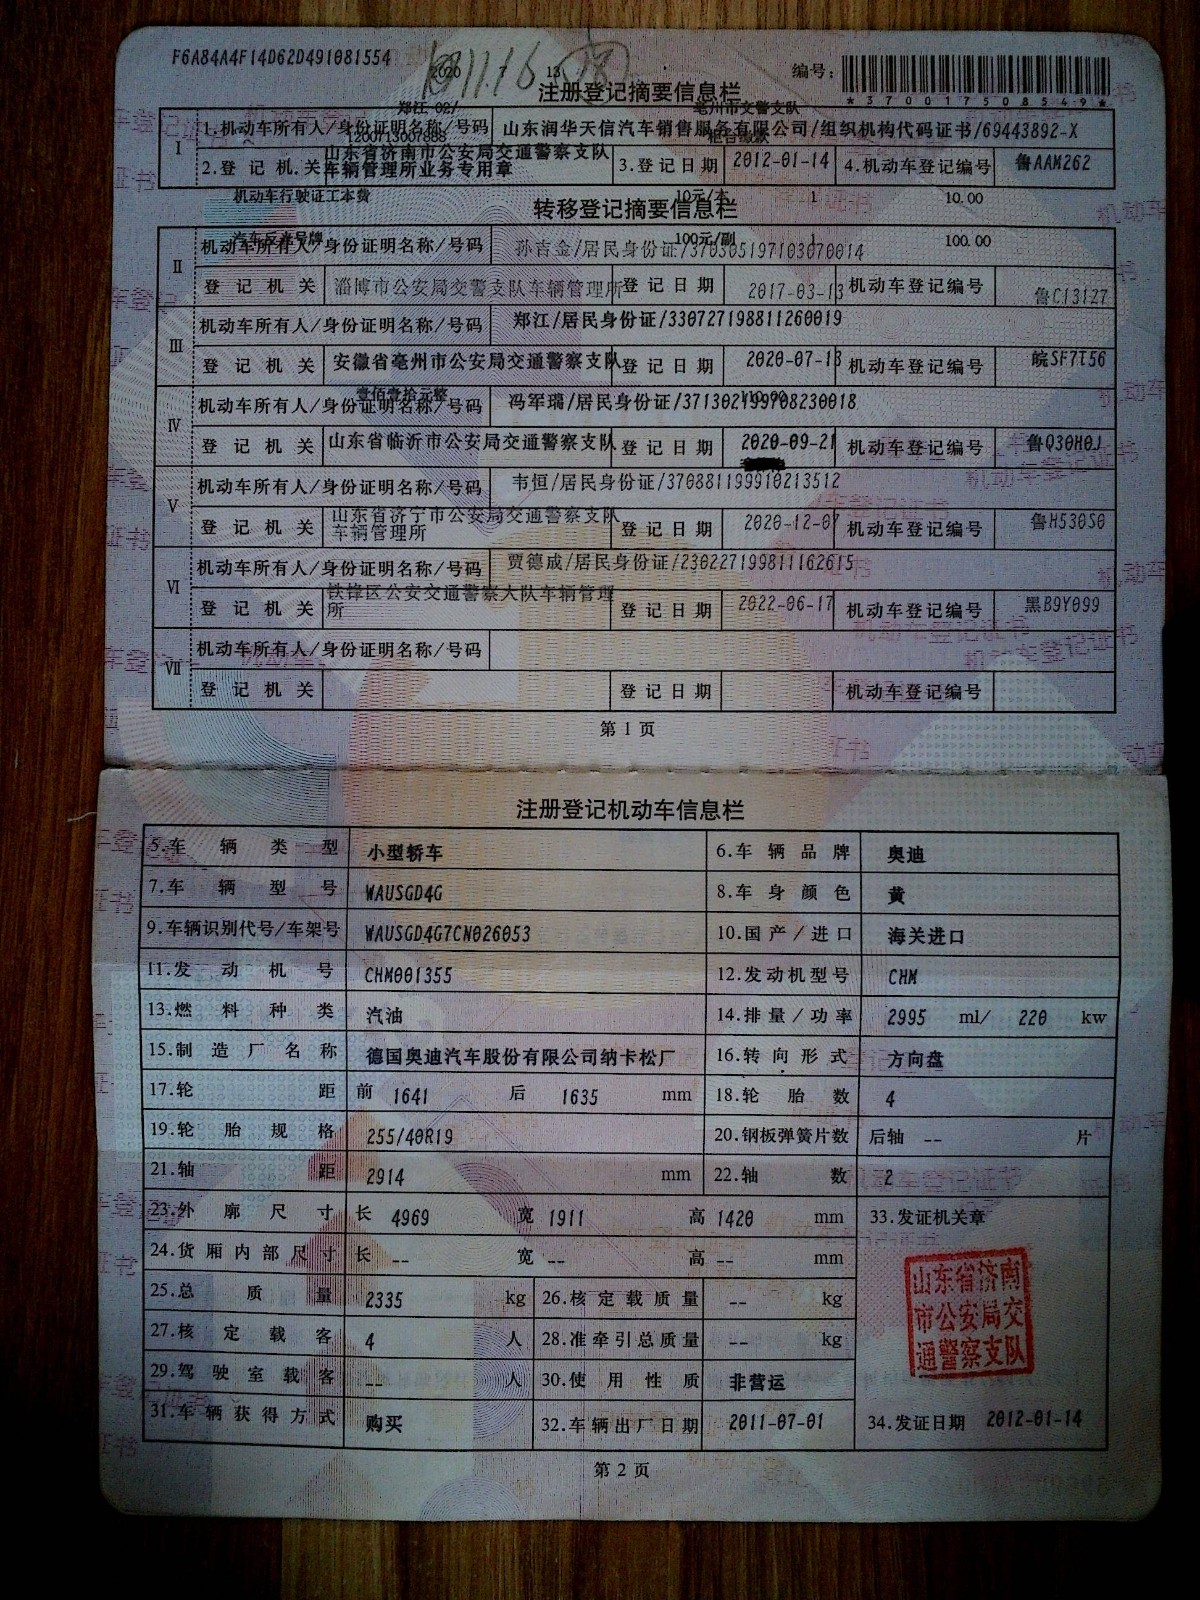 F6A84A4F14D62D491081554
2020 7 13
编号：
*370017508549*
注册登记摘要信息栏
亳州市交警支队
Ⅰ 1.机动车所有人/身份证明名称/号码 山东润华天信汽车销售服务有限公司/组织机构代码证书/69443892-X
2.登记机关 山东省济南市公安局交通警察支队车辆管理所业务专用章 3.登记日期 2012-01-14 4.机动车登记编号 鲁AAM262
机动车行驶证工本费 10元/本 1 10.00
转移登记摘要信息栏
汽车反光号牌 100元/副 1 100.00
Ⅱ 机动车所有人/身份证明名称/号码 孙吉金/居民身份证/370305197103070014
登记机关 淄博市公安局交警支队车辆管理所 登记日期 2017-03-13 机动车登记编号 鲁C131Z7
Ⅲ 机动车所有人/身份证明名称/号码 郑江/居民身份证/330727198811260019
登记机关 安徽省亳州市公安局交通警察支队 登记日期 2020-07-13 机动车登记编号 皖SF7T56
壹佰壹拾元整 110.00
Ⅳ 机动车所有人/身份证明名称/号码 冯军瑞/居民身份证/371302199708230018
登记机关 山东省临沂市公安局交通警察支队 登记日期 2020-09-21 机动车登记编号 鲁Q30H0J
Ⅴ 机动车所有人/身份证明名称/号码 韦恒/居民身份证/370881199910213512
登记机关 山东省济宁市公安局交通警察支队车辆管理所 登记日期 2020-12-07 机动车登记编号 鲁H530S0
Ⅵ 机动车所有人/身份证明名称/号码 贾德成/居民身份证/230227199811162615
登记机关 铁锋区公安交通警察大队车辆管理所 登记日期 2022-06-17 机动车登记编号 黑B9Y099
Ⅶ 机动车所有人/身份证明名称/号码
登记机关 登记日期 机动车登记编号
第1页
注册登记机动车信息栏
5.车辆类型 小型轿车 6.车辆品牌 奥迪
7.车辆型号 WAUSGD4G 8.车身颜色 黄
9.车辆识别代号/车架号 WAUSGD4G7CN026053 10.国产/进口 海关进口
11.发动机号 CHM001355 12.发动机型号 CHM
13.燃料种类 汽油 14.排量/功率 2995 ml/ 220 kw
15.制造厂名称 德国奥迪汽车股份有限公司纳卡松厂 16.转向形式 方向盘
17.轮距 前 1641 后 1635 mm 18.轮胎数 4
19.轮胎规格 255/40R19 20.钢板弹簧片数 后轴 -- 片
21.轴距 2914 mm 22.轴数 2
23.外廓尺寸 长 4969 宽 1911 高 1420 mm 33.发证机关章
24.货厢内部尺寸 长 -- 宽 -- 高 -- mm
山东省济南
市公安局交
通警察支队
25.总质量 2335 kg 26.核定载质量 -- kg
27.核定载客 4 人 28.准牵引总质量 -- kg
29.驾驶室载客 -- 人 30.使用性质 非营运
31.车辆获得方式 购买 32.车辆出厂日期 2011-07-01 34.发证日期 2012-01-14
第2页